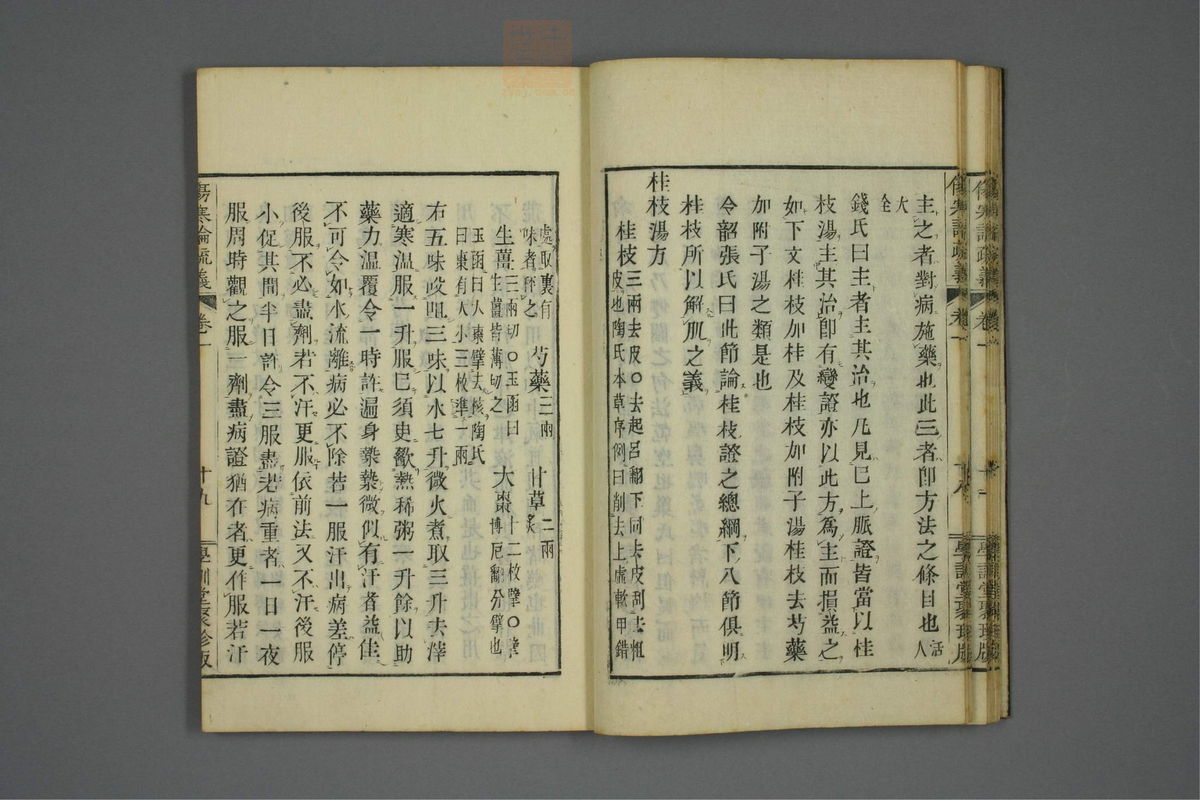 主之者對病施藥也此三者卽方法之條目也活人
大全
錢氏曰主者主其治也凡見巳上脈證皆當以桂
枝湯主其治卽有變證亦以此方爲主而損益之
如下文桂枝加桂及桂枝加附子湯桂枝去芍藥
加附子湯之類是也
令韶張氏曰此節論桂枝證之總綱下八節俱明
桂枝所以解肌之義
桂枝湯方
桂枝三兩去皮○去起呂翻下同去皮刮去粗
皮也陶氏本草序例曰削去上虛軟甲錯
處取裏有
味者秤之
芍藥三兩
甘草二兩炙
生薑三兩切○玉函曰
生薑皆薄切之
大棗十二枚擘○擘
博厄翻分擘也
玉函曰人棗擘去核陶氏
曰棗有大小三枚準一兩
右五味㕮咀三味以水七升微火煮取三升去滓
適寒溫服一升服巳須臾歠熱稀粥一升餘以助
藥力溫覆令一時許遍身漐漐微似有汗者益佳
不可令如水流離病必不除若一服汗出病差停
後服不必盡劑若不汗更服依前法又不汗後服
小促其間半日許令三服盡若病重者一日一夜
服周時觀之服一劑盡病證猶在者更作服若汗
傷寒論疏義
卷一
十八
傷寒論疏義
卷一
十九
學訓堂聚珍版